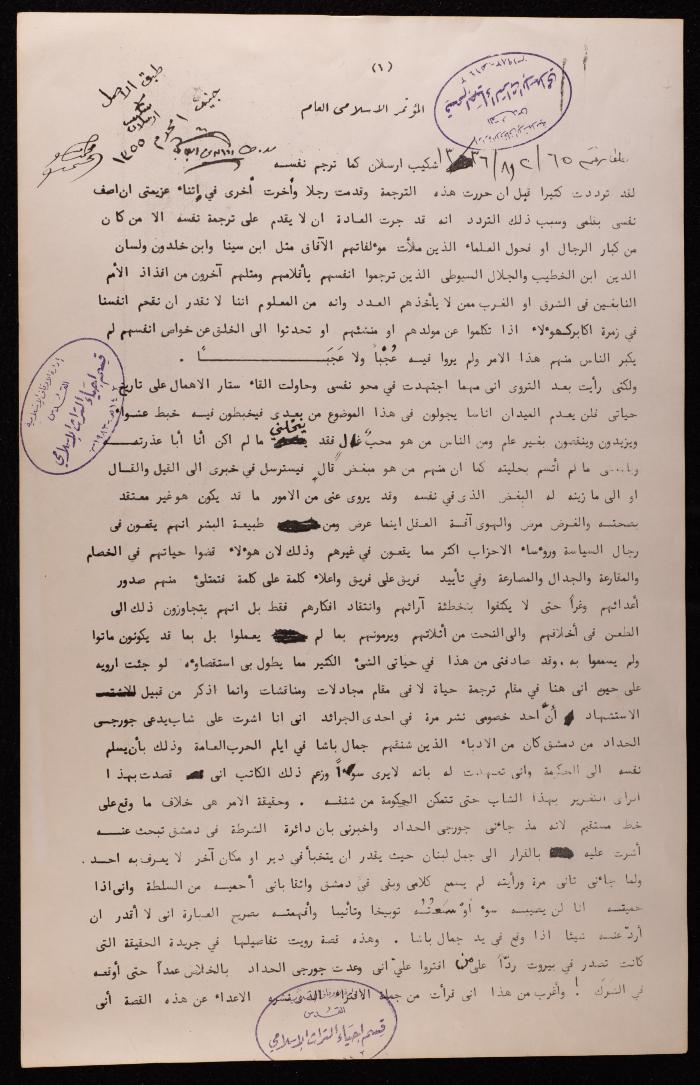 (٦)
المؤتمر الاسلامى العام
طبق الاصل
شكيب ارسلان
جنيف ١ محرم ١٣٥٥
شكيب ارسلان كما ترجم نفسه
لقد ترددت كثيرا قبل ان حررت هذه الترجمة وقدمت رجلا وأخرت أخرى في إثناء عزيمتى ان اصف
نفسى بقلمى وسبب ذلك التردد انه قد جرت العادة ان لا يقدم على ترجمة نفسه الا من كان
من كبار الرجال او فحول العلماء الذين ملأت موءلفاتهم الآفاق مثل ابن سينا وابن خلدون ولسان
الدين ابن الخطيب والجلال السيوطى الذين ترجموا انفسهم بأقلامهم ومثلهم آخرون من افذاذ الأمم
النابغين فى الشرق او الغرب ممن لا يأخذهم العدد وانه من المعلوم اننا لا نقدر ان نقحم انفسنا
في زمرة اكابر كهوءلاء اذا تكلموا عن مولدهم او منشئهم او تحدثوا الى الخلق عن خواص انفسهم لم
يكبر الناس منهم هذا الامر ولم يروا فيه عُجْباً ولا عَجَبَـــــاً .
ولكنى رأيت بعد التروى انى مهما اجتهدت في محو نفسى وحاولت القاء ستار الاهمال على تاريخ
حياتى فلن يعدم الميدان اناسا يجولون فى هذا الموضوع من بعدى فيخبطون فيه خبط عشواء
ويزيدون وينقصون بغير علم ومن الناس من هو محبّ غال فقد ينحلني ما لم اكن أنا أبا عذرته
ما لم أتسم بحليته كما ان منهم من هو مبغض قال فيسترسل في خبرى الى القيل والقال
او الى ما زينه له البغض الذى في نفسه وقد يروى عنى من الامور ما قد يكون هو غير معتقد
بصحته والغرض مرض والهوى آفة العقل اينما عرض ومن طبيعة البشر انهم يقعون فى
رجال السياسة وروءساء الاحزاب اكثر مما يقعون في غيرهم وذلك لان هوءلاء قضوا حياتهم في الخصام
والمقارعة والجدال والمصارعة وفي تأييد فريق على فريق واعلاء كلمة على كلمة فتمتلىء منهم صدور
أعدائهم وغراً حتى لا يكتفوا بتخطئة آرائهم وانتقاد افكارهم فقط بل انهم يتجاوزون ذلك الى
الطعن فى أخلاقهم والى النحت من أثلاتهم ويرمونهم بما لم يعملوا بل بما قد يكونون ماتوا
ولم يسمعوا به . وقد صادفنى من هذا في حياتى الشىء الكثير مما يطول بى استقصاوءه لو جئت ارويه
على حين انى هنا في مقام ترجمة حياة لا فى مقام مجادلات ومناقشات وانما اذكر من قبيل
الاستشهاد أنّ احد خصومى نشر مرة في احدى الجرائد انى انا اشرت على شاب يدعى جورجى
الحداد من دمشق كان من الادباء الذين شنقهم جمال باشا في ايام الحرب العامة وذلك بأن يسلم
نفسه الى الحكومة وانى تعهدت له بانه لا يرى سوءاً وزعم ذلك الكاتب انى قصدت بهذا
التغرير بهذا الشاب حتى تتمكن الحكومة من شنقه . وحقيقة الامر هى خلاف ما وقع على
خط مستقيم لانه مذ جاءنى جورجى الحداد واخبرنى بان دائرة الشرطة فى دمشق تبحث عنه
أشرت عليه بالفرار الى جبل لبنان حيث يقدر ان يتخبأ في دير او مكان آخر لا يعرف به احد .
ولما جاءنى ثانى مرة ورأيته لم يسمع كلامى وبقى فى دمشق واثقا بانى أحميه من السلطة وانى اذا
حميته انا لن يصيبه سوء أوسعتُه توبيخا وتأنيبا وأفهمته بصريح العبارة انى لا أقدر ان
أردّ عنه شيئا اذا وقع فى يد جمال باشا . وهذه قصة رويت تفاصيلها في جريدة الحقيقة التى
كانت تصدر فى بيروت ردّاً على من افتروا علىّ انى وعدت جورجى الحداد بالخلاص عمداً حتى أوقعه
في الشرك ! وأغرب من هذا انى قرأت من جملة الافتراء الاعداء عن هذه القصة أنى
قسم إحياء التراث الإسلامي
القدس
قسم إحياء التراث الإسلامي
القدس
قسم إحياء التراث الإسلامي